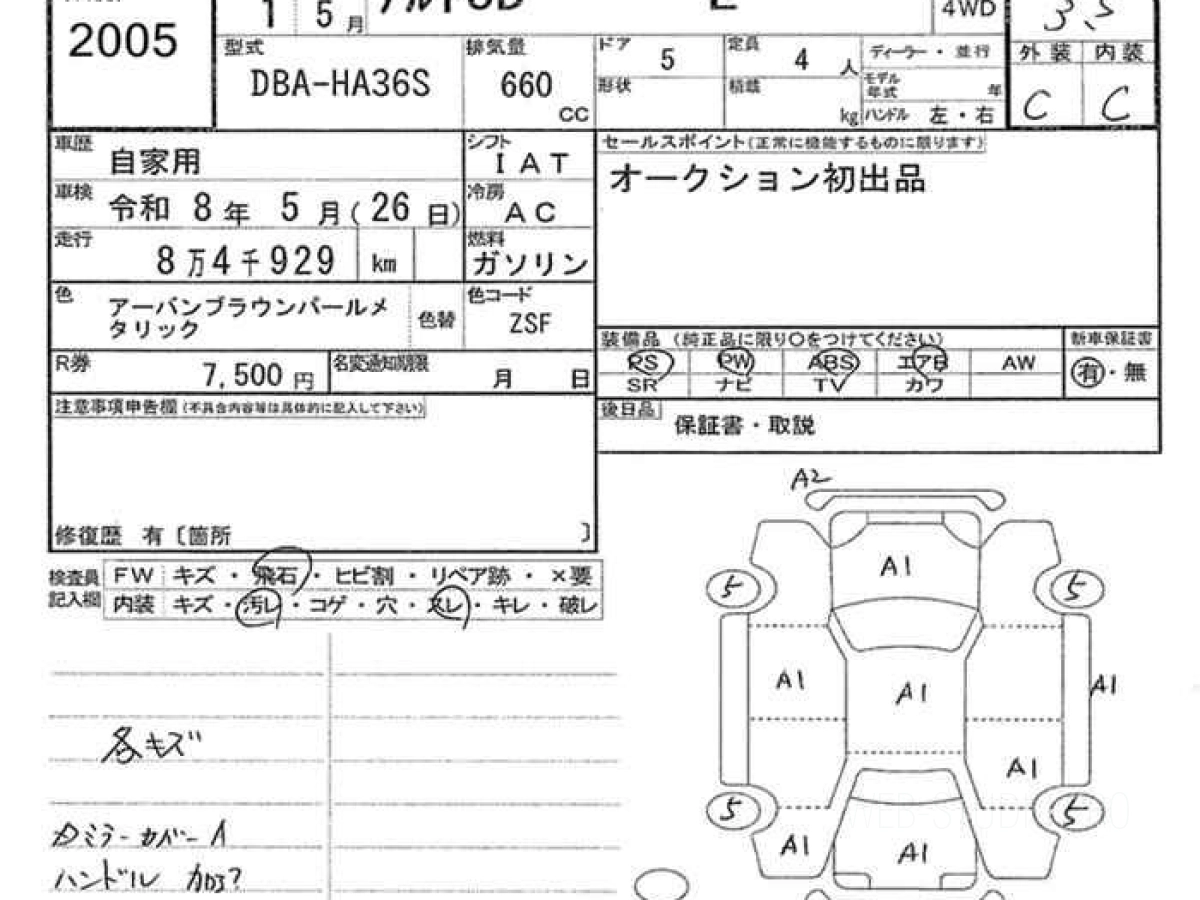 2005
15月
4WD
3.5
型式
DBA-HA36S
排気量
660
CC
ドア
5
形状
定員
4人
積載
kg
ディーラー・並行
モデル
年式
年
ハンドル 左・右
外装 内装
C C
車歴
自家用
シフト
IAT
車検
令和 8年 5月(26日)
冷房
AC
走行
8万4千929 km
燃料
ガソリン
色
アーバンブラウンパールメ
タリック
色替
色コード
ZSF
R券
7,500円
名変通知期限
月 日
セールスポイント(正常に機能するものに限ります)
オークション初出品
装備品 (純正品に限り〇をつけてください)
PS PW ABS エアB AW
SR ナビ TV カワ
新車保証書
有・無
後日品
保証書・取説
注意事項申告欄(不具合内容等は具体的に記入して下さい)
修復歴 有〔箇所 〕
検査員
記入欄
FW キズ・飛石・ヒビ割・リペア跡・×要
内装 キズ・汚レ・コゲ・穴・スレ・キレ・破レ
各キズ
ミラーカバーA
ハンドル 加工?
A2
A1
5 5
A1 A1 A1
A1
5 5
A1 A1